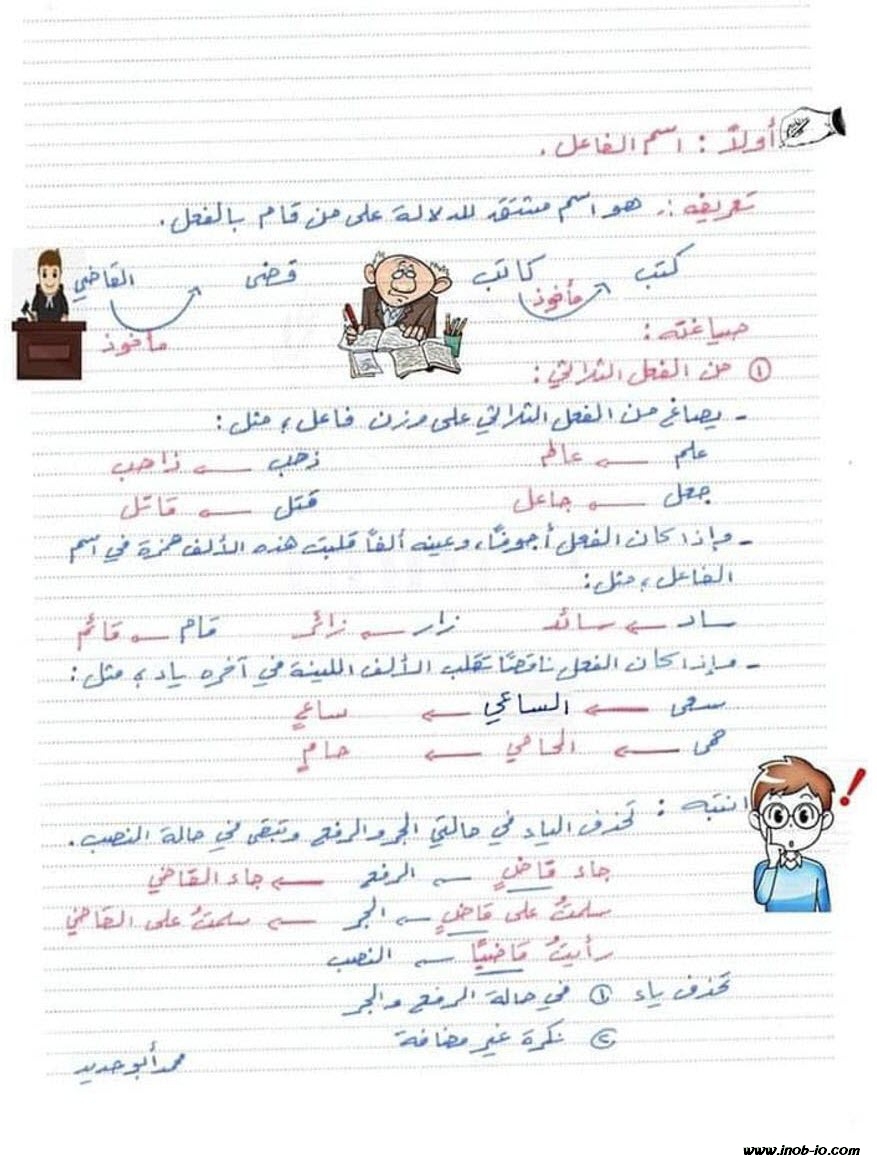 أولاً : اسم الفاعل .
تعريفه :. هو اسم مشتق للدلالة على من قام بالفعل .
كتب كاتب قضى القاضي
مأخوذ
مأخوذ
صياغته :
① من الفعل الثلاثي :
- يصاغ من الفعل الثلاثي على وزن فاعل ، مثل :
علم ← عالم ذهب ← ذاهب
جعل ← جاعل قتل ← قاتل
- وإذا كان الفعل أجوفًا، وعينه ألفًا قلبت هذه الألف همزة في اسم
الفاعل ، مثل :
ساد ← سائد زار ← زائر قام ← قائم
- وإذا كان الفعل ناقصًا تقلب الألف اللينة في آخره ياء ، مثل :
سعى ← الساعي ← ساعٍ
حمى ← الحامي ← حامٍ
انتبه : تحذف الياء في حالتي الجر والرفع وتبقى في حالة النصب .
جاء قاضٍ ← الرفع ← جاء القاضي
سلمتُ على قاضٍ ← الجر ← سلمتُ على القاضي
رأيتُ قاضيًا ← النصب
تحذف ياء ① في حالة الرفع والجر
② نكرة غير مضافة
محمد أبو حديد
www.inob-io.com